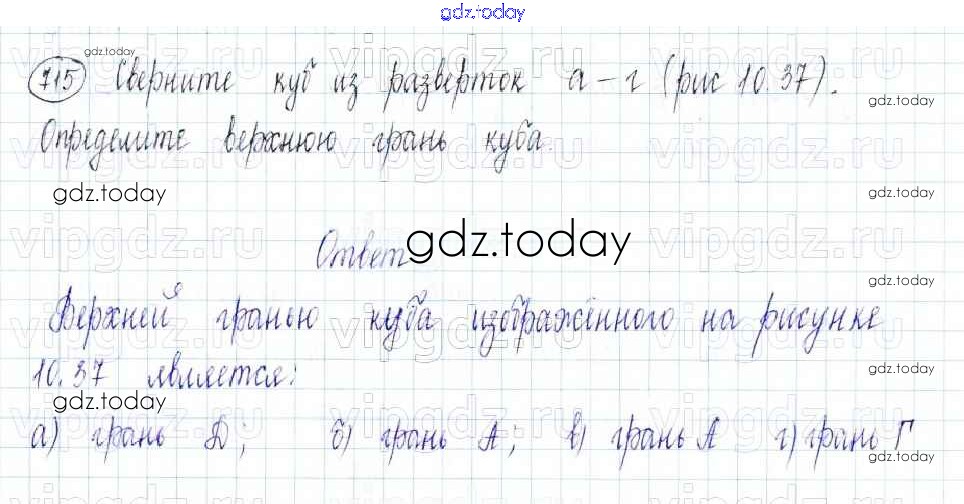 gdz.today
715 Сверните куб из разверток а-г (рис 10.37).
Определите верхнюю грань куба.
Ответ
Верхней гранью куба изображённого на рисунке
10.37 является:
а) грань Д; б) грань А; в) грань А г) грань Г
gdz.today
gdz.today
gdz.today
gdz.today
gdz.today
gdz.today
gdz.today
gdz.today
gdz.today
vipgdz.ru